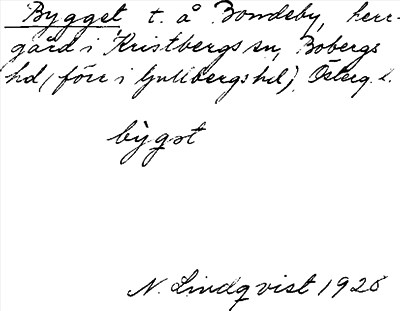 Bygget t. å Bondeby, herr-
gård i Kristbergs sn, Bobergs
hd (förr i Gullbergs hd), Österg. l.
bỳgət
N. Lindqvist 1926